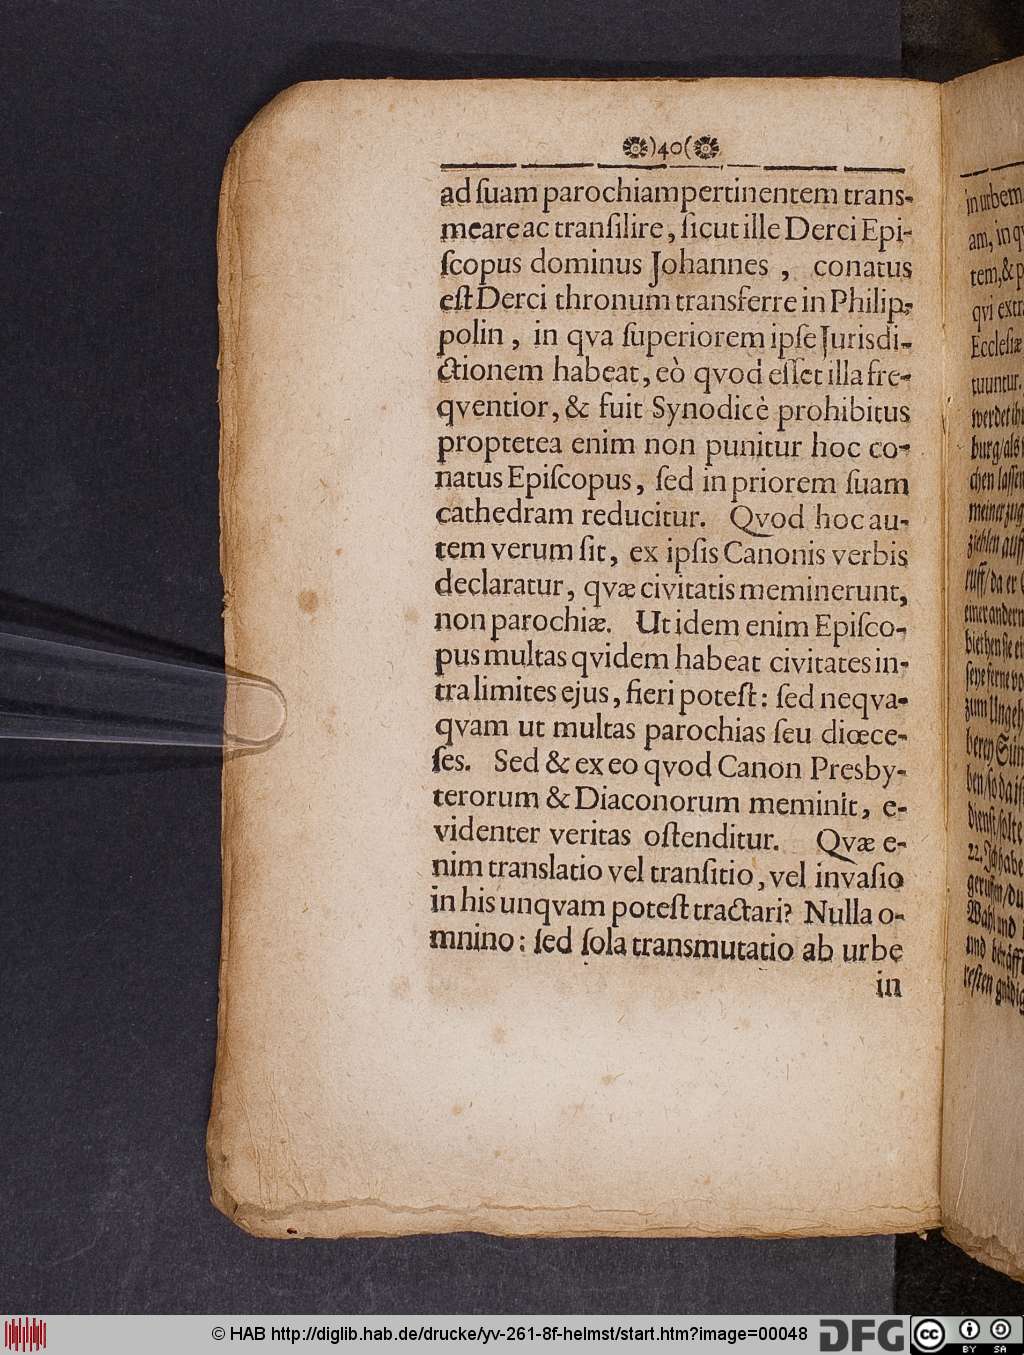 )40(
ad ſuam parochiam pertinentem trans-
meare ac tranſilire, ſicut ille Derci Epi-
ſcopus dominus Johannes, conatus
eſt Derci thronum transferre in Philip-
polin, in qva ſuperiorem ipſe Jurisdi-
ctionem habeat, eò qvod eſſet illa fre-
qventior, & fuit Synodicè prohibitus
proptetea enim non punitur hoc co-
natus Epiſcopus, ſed in priorem ſuam
cathedram reducitur. Qvod hoc au-
tem verum ſit, ex ipſis Canonis verbis
declaratur, qvæ civitatis meminerunt,
non parochiæ. Ut idem enim Epiſco-
pus multas qvidem habeat civitates in-
tra limites ejus, fieri poteſt: ſed neqva-
qvam ut multas parochias ſeu diœce-
ſes. Sed & ex eo qvod Canon Presby-
terorum & Diaconorum meminit, e-
videnter veritas oſtenditur. Qvæ e-
nim translatio vel tranſitio, vel invaſio
in his unqvam poteſt tractari? Nulla o-
mnino: ſed ſola transmutatio ab urbe
in
in urbem
am, in
tem, &
qvi
Eccleſiæ
tuuntur.
werdet
burg/als
chen laſſen
meiner
ziehlen auff
ruff/da er
einer andern
biethen ſie
ſeye ferne
zum
beren
ben/ſo da
dienſt/ſolte
22. Ich habe
geruffen/
Wahl und
und
© HAB http://diglib.hab.de/drucke/yv-261-8f-helmst/start.htm?image=00048
DFG
cc
BY SA